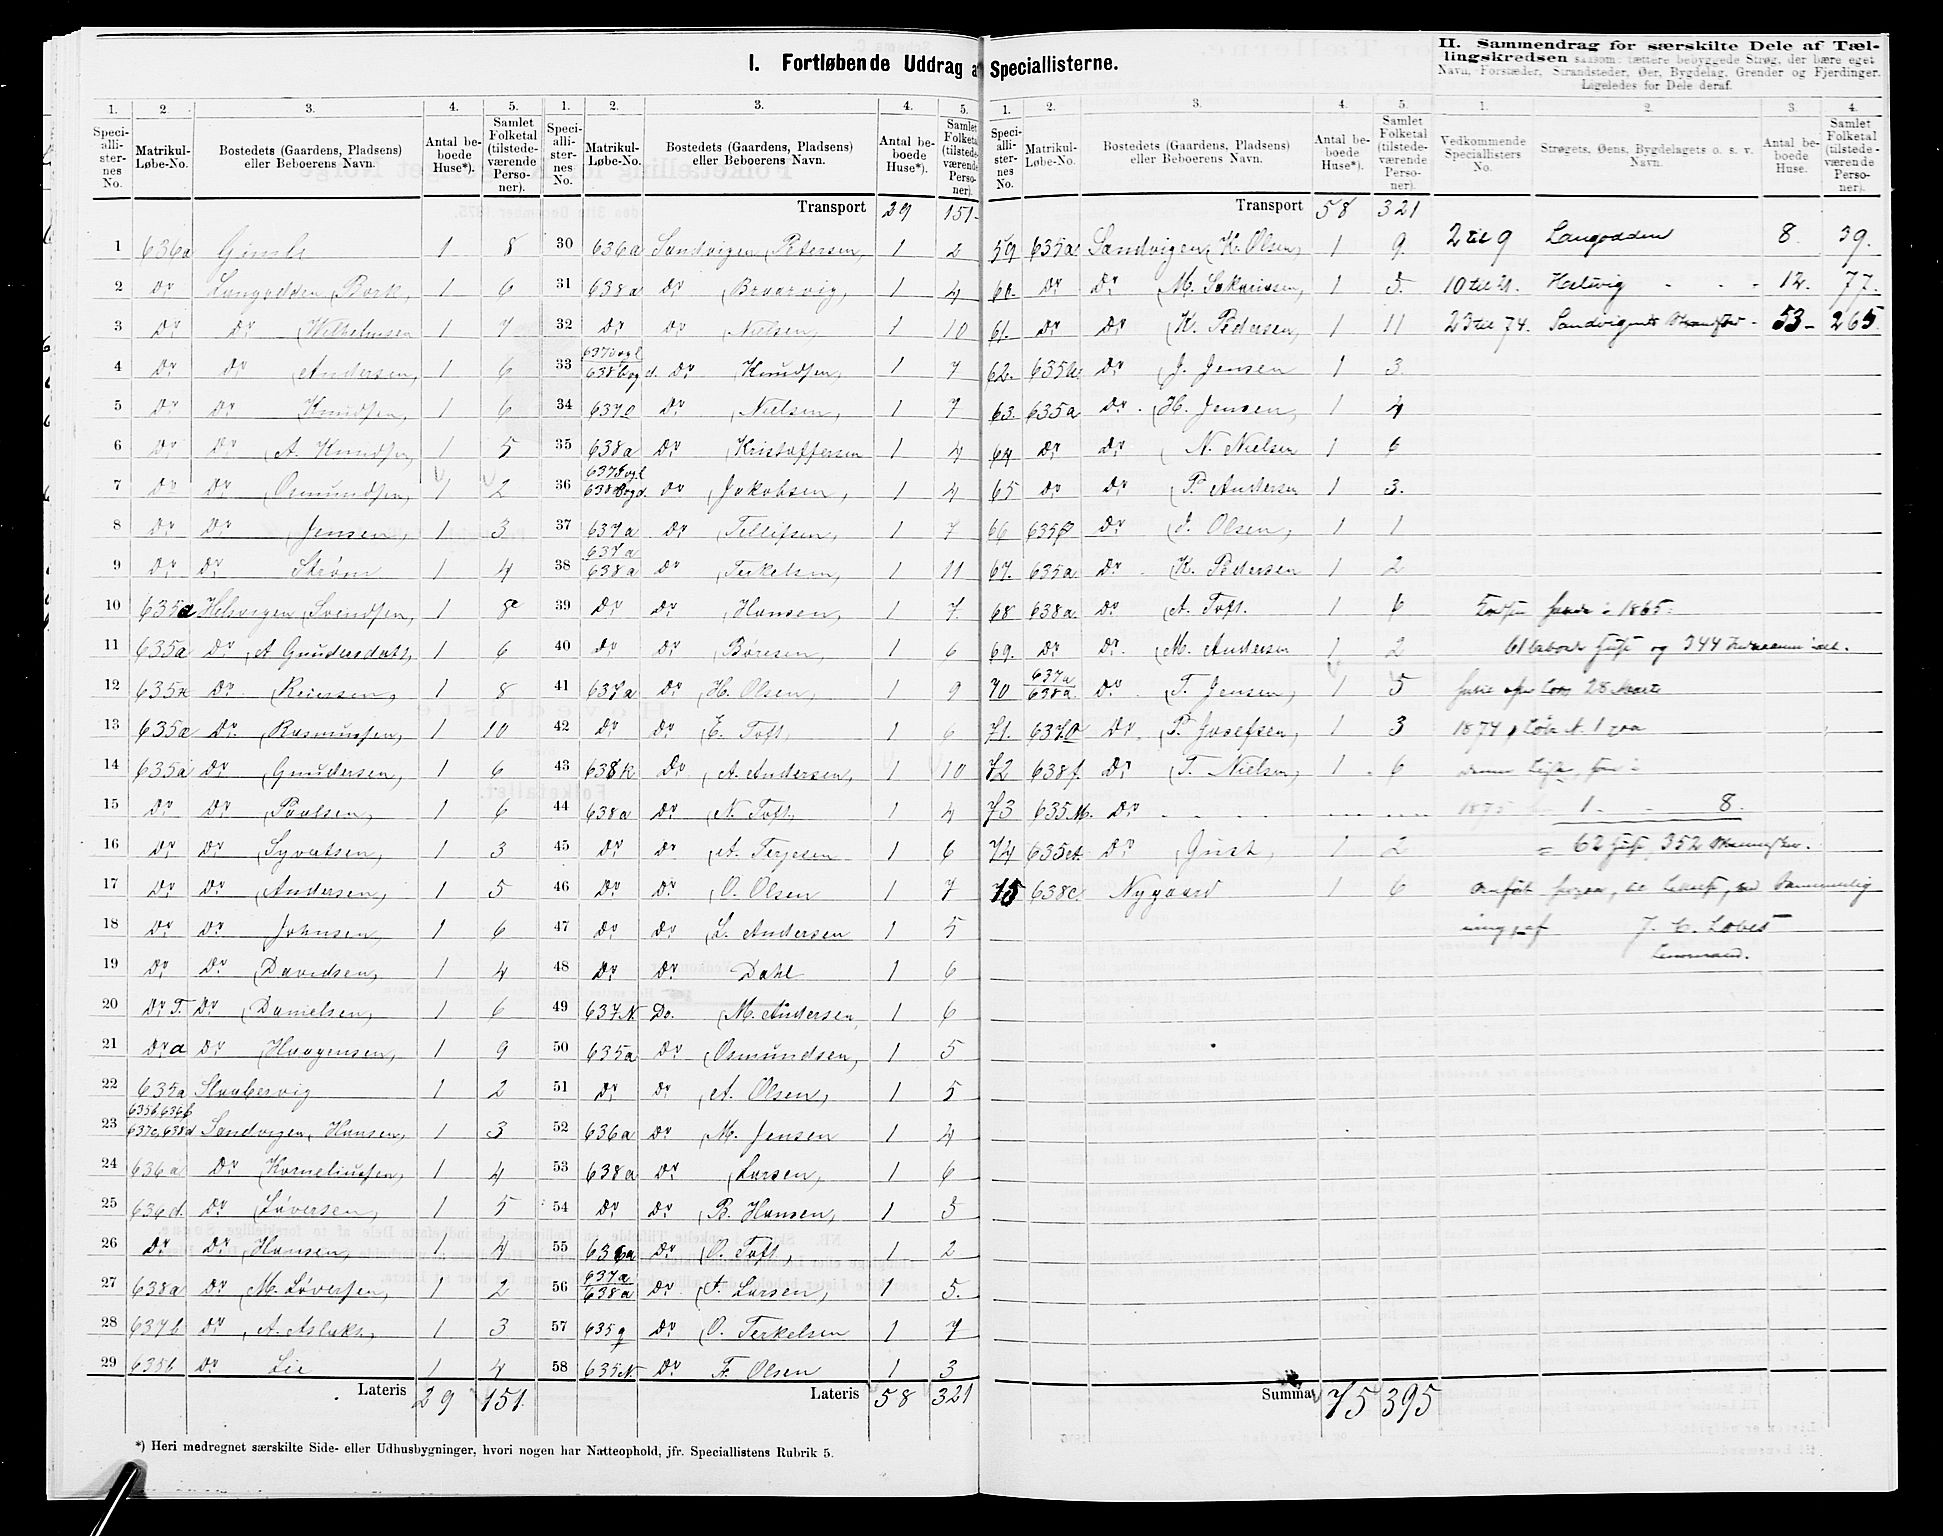 I. Fortløbende Uddrag a Speciallisterne.
II. Sammendrag for særskilte Dele af Tæl-
lingskredsen saasom: tættere bebyggede Strøg, der bære eget
Navn, Forstæder, Strandsteder, Øer, Bygdelag, Grender og Fjerdinger.
Ligeledes for Dele deraf.
1. 2. 3. 4. 5.
Speci-alli-ster-nes No. Matrikul-Løbe-No. Bostedets (Gaardens, Pladsens) eller Beboerens Navn. Antal be-boede Huse*). Samlet Folketal (tilstede-værende Perso-ner).
1 636a Gimle 1 8
2 Do Langodden, Bork, 1 6
3 Do Do (Wilhelmsen 1 7
4 Do Do (Andersen, 1 6
5 Do Do (Knudsen, 1 6
6 Do Do (A. Knudsen, 1 5
7 Do Do (Osmundsen, 1 2
8 Do Do (Jensen, 1 3
9 Do Do Strøm 1 4
10 635a Helvigen (Svendsen, 1 8
11 635a Do (A Gundersdatt, 1 6
12 635 Do (Reiersen, 1 8
13 635a Do (Rasmussen, 1 10
14 635a Do (Gundersen, 1 6
15 Do Do (Paulsen, 1 6
16 Do Do (Syvertsen, 1 3
17 Do Do (Andersen, 1 5
18 Do Do Johnsen, 1 6
19 Do Do (Davidsen, 1 4
20 Do T. Do (Danielsen, 1 6
21 Do a Do (Haagensen, 1 9
22 635a Slaabervig 1 2
23 635b, 636b 637c, 638d Sandvigen, Hansen, 1 3
24 636a Do (Korneliussen, 1 4
25 636d. Do (Løversen, 1 5
26 Do Do (Hansen, 1 4
27 638a Do (M. Løversen, 1 2
28 637b Do (A. Aslaks, 1 3
29 635b Do Lie 1 4
Lateris 29 151.
1. 2. 3. 4. 5.
Speci-alli-ster-nes No. Matrikul-Løbe-No. Bostedets (Gaardens, Pladsens) eller Beboerens Navn. Antal be-boede Huse*). Samlet Folketal (tilstede-værende Perso-ner).
Transport 29 151.
30 636a Sandvigen (Petersen, 1 2
31 638a Do (Braarvig, 1 4
32 Do Do (Nielsen, 1 10
33 638b Do (Knudsen, 1 7
34 637 Do (Nielsen, 1 7
35 638a Do (Kristoffersen 1 4
36 Do (Jakobsen, 1 4
37 637a Do (Tellifsen, 1 7
38 637a 638a Do (Terkelsen, 1 11
39 Do Do (Hansen, 1 7.
40 Do Do (Børesen, 1 6
41 637a Do (H. Olsen, 1 9
42 Do Do (E. Toft, 1 6
43 638k Do (A. Andersen, 1 10
44 638a Do (N. Toft, 1 4
45 Do Do (A. Terjesen 1 6
46 Do Do (O. Olsen 1 7
47 Do Do (L. Andersen 1 5
48 Do Do Dahl 1 6
49 637N. Do. (M. Andersen, 1 6
50 635a Do (Osmundsen, 1 5
51 Do Do (A. Olsen, 1 5
52 636a Do (M. Jensen 1 4
53 638a Do (Larsen, 1 6
54 Do Do (B. Hansen, 1 3
55 636a Do (O. Toft, 1 2
56 637a 638a Do (A. Larsen, 1 5.
57 635g Do (O. Terkelsen 1 7
58 635N. Do F. Olsen 1 3
Lateris 58 321
1. 2. 3. 4. 5.
Speci-alli-ster-nes No. Matrikul-Løbe-No. Bostedets (Gaardens, Pladsens) eller Beboerens Navn. Antal be-boede Huse*). Samlet Folketal (tilstede-værende Perso-ner).
Transport 58 321
59 635a Sandvigen (K. Olsen, 1 9.
60. Do Do (M. Sakariasen, 1 5.
61. Do Do (K. Pedersen, 1 11
62. 635 Do (J. Jensen 1 3.
63. 635a Do (H. Jensen, 1 4
64 Do Do (N. Nielsen 1 6
65 Do Do (P. Andersen 1 3.
66 635 Do (J. Olsen, 1 1
67. 635a Do (K. Pedersen 1 2
68 638a. Do (A. Toft. 1 6
69. Do Do. (M. Andersen 1 2
70 637a 638a. Do (T. Jensen, 1 5
71. 637 Do. (P. Josefsen, 1 3
72 638f. Do (T. Nielsen, 1 6
73 635.M. Do
74 635 Do (Grist, 1 2
75 638c. Nygaard 1 6
Summa 75 395
1. 2. 3. 4.
Vedkommende Speciallisters No. Strøgets, Øens, Bygdelagets o. s. v. Navn. Antal be-boede Huse. Samlet Folketal (tilstede-værende Perso-ner).
2 til 9 Langodden 8. 39.
10 til 21. Helvig 12. 77.
23 til 74. Sandvigens 53 265.
1865.
61 og 344
28
1874
1. 8.
= 62 352
af J. C.
Lensmand.
*) Heri medregnet særskilte Side- eller Udhusbygninger, hvori nogen har Natteophold, jfr. Speciallistens Rubrik 5.